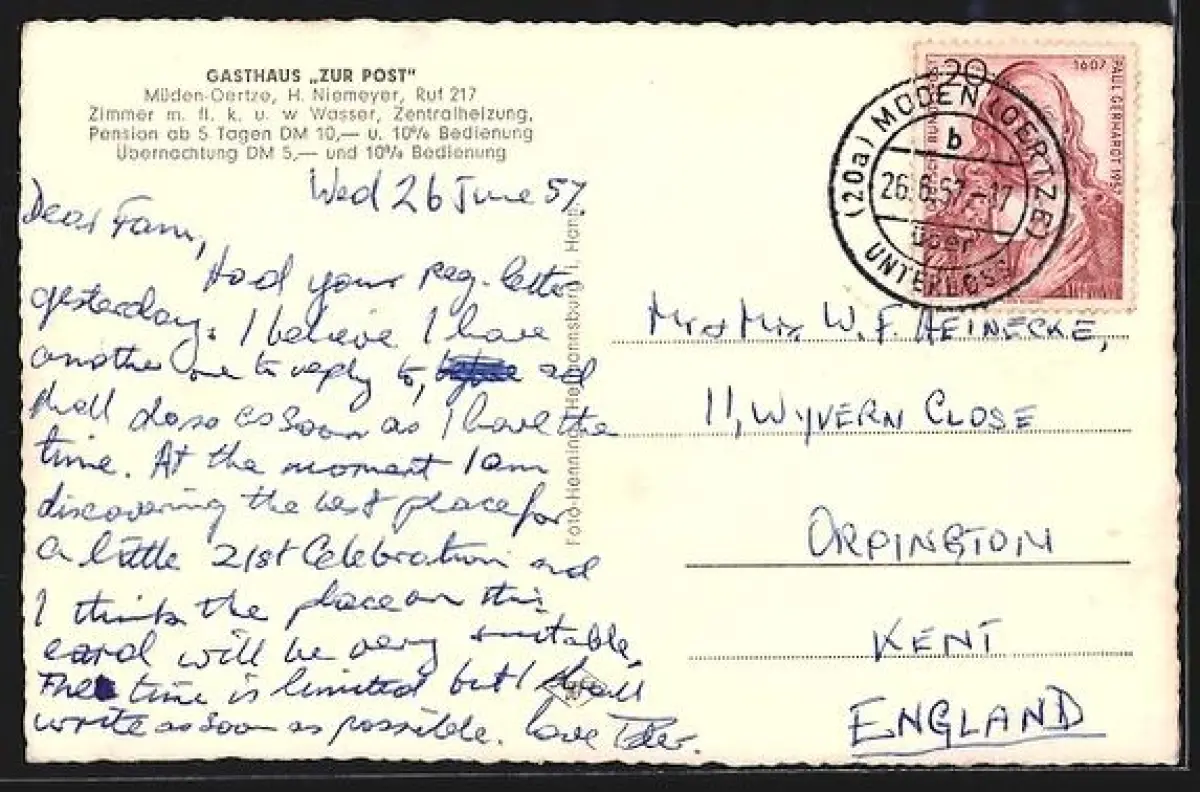 GASTHAUS „ZUR POST"
Müden-Oertze, H. Niemeyer, Ruf 217
Zimmer m. fl. k. u. w Wasser, Zentralheizung,
Pension ab 5 Tagen DM 10,— u. 10% Bedienung
Übernachtung DM 5,— und 10% Bedienung
Wed 26 June 57
Dear Fam,
Had your reg. letter
yesterday. I believe I have
another one to reply to, and
shall do so as soon as I have the
time. At the moment I am
discovering the best place for
a little 21st Celebration and
I think the place on this
card will be very suitable.
The time is limited but I shall
write as soon as possible. Love Peter.
Foto-Henning, Hermannsburg i. Hann.
20
1607
PAUL GERHARDT 1957
(20a) MÜDEN (OERTZE)
b
26.6.57.-17
über
UNTERLÜSS
Mr & Mrs. W. F. HEINECKE,
11, WYVERN CLOSE
ORPINGTON
KENT
ENGLAND